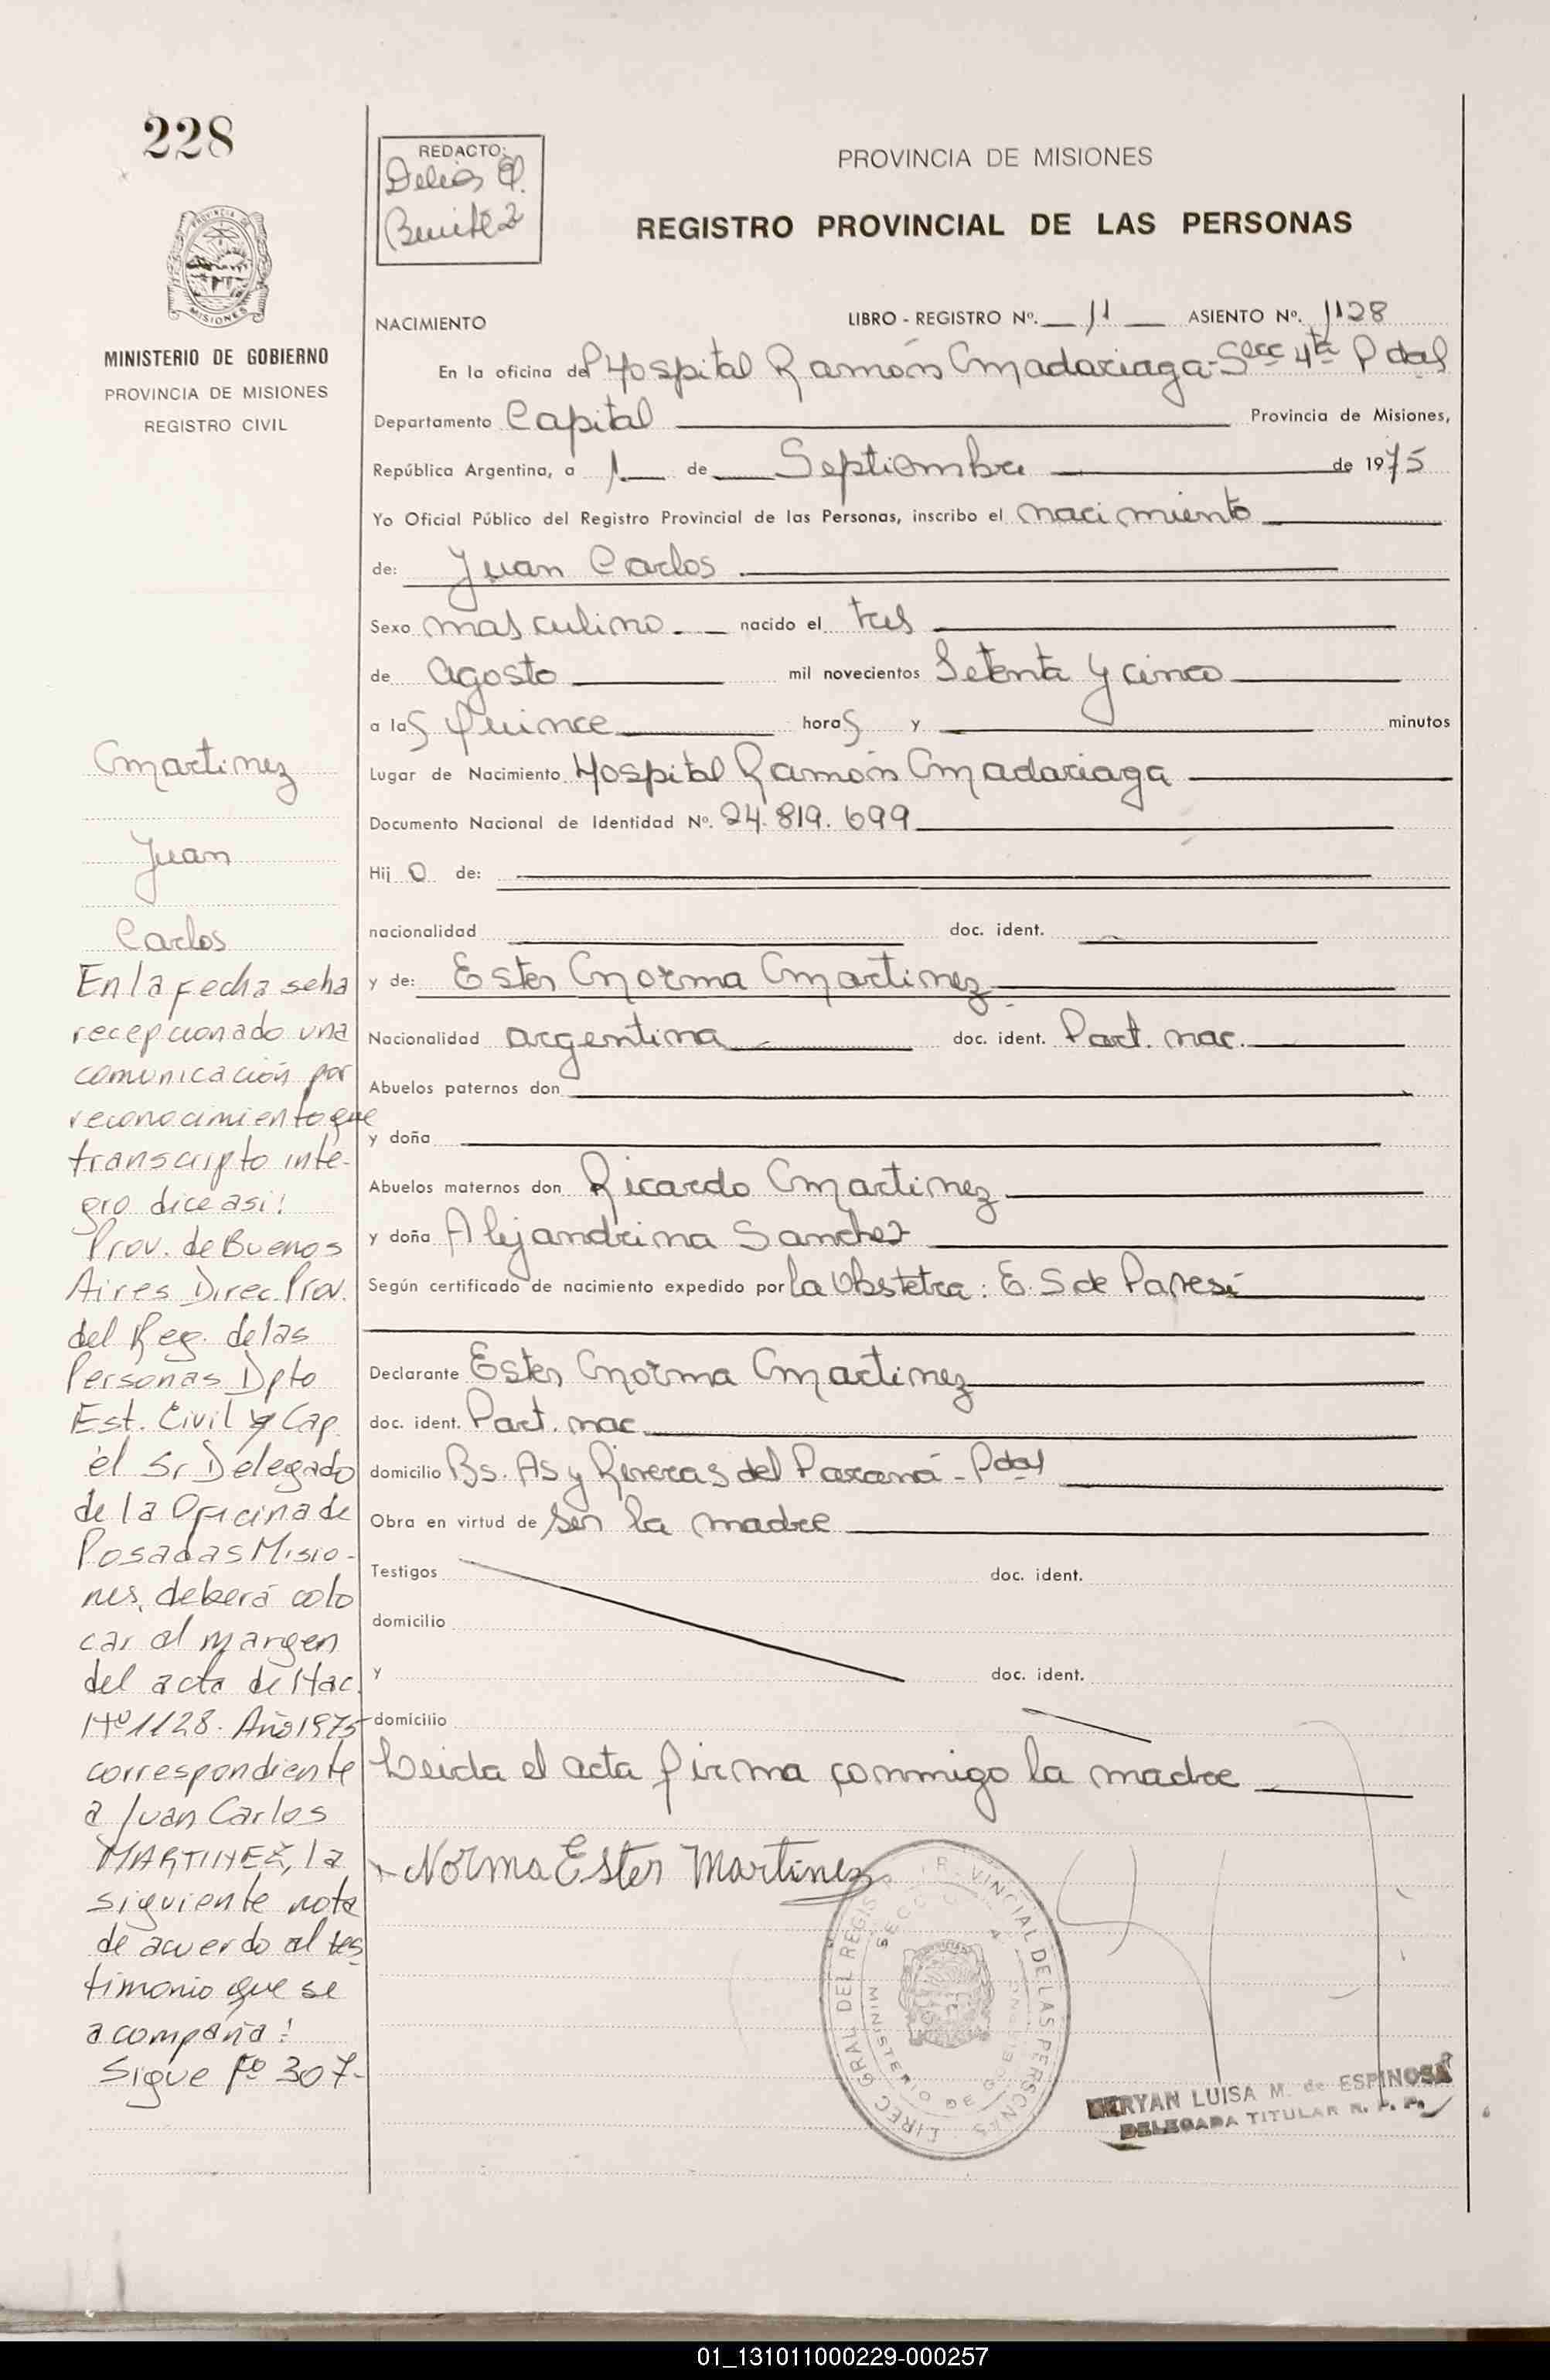 228
PROVINCIA DE
MISIONES
MINISTERIO DE GOBIERNO
PROVINCIA DE MISIONES
REGISTRO CIVIL
Martinez
Juan
Carlos
En la fecha se ha
recepcionado una
comunicación por
reconocimiento que
transcripto inte-
gro dice asi:
Prov. de Buenos
Aires Direc. Prov.
del Reg. de las
Personas Dpto
Est. Civil y Cap.
el Sr Delegado
de la Oficina de
Posadas Misio-
nes, deberá colo
car al margen
del acta de Nac.
Nº 1128. Año 1975
correspondiente
a Juan Carlos
MARTINEZ, la
siguiente nota
de acuerdo al tes
timonio que se
acompaña:
Sigue Fº 307-
REDACTO:
Delia
Benitez
PROVINCIA DE MISIONES
REGISTRO PROVINCIAL DE LAS PERSONAS
NACIMIENTO LIBRO - REGISTRO Nº. 11 ASIENTO Nº. 1128
En la oficina del Hospital Ramón Madariaga - Secc 4ta Pdas
Departamento Capital Provincia de Misiones,
República Argentina, a 1 de Septiembre de 1975
Yo Oficial Público del Registro Provincial de las Personas, inscribo el nacimiento
de: Juan Carlos
Sexo masculino nacido el tres
de agosto mil novecientos Setenta y cinco
a las quince horas y minutos
Lugar de Nacimiento Hospital Ramón Madariaga
Documento Nacional de Identidad Nº. 24.819.699
Hijo de:
nacionalidad doc. ident.
y de: Ester Norma Martinez
Nacionalidad argentina doc. ident. Part. nac.
Abuelos paternos don
y doña
Abuelos maternos don Ricardo Martinez
y doña Alejandrina Sanchez
Según certificado de nacimiento expedido por la Obstetra: E. S de
Declarante Ester Norma Martinez
doc. ident. Part. nac.
domicilio Bs. As y Riveras del Paraná - Pdas
Obra en virtud de ser la madre
Testigos doc. ident.
domicilio
y doc. ident.
domicilio
Leida el acta firma conmigo la madre
Norma Ester Martinez
DIREC GRAL DEL REGIST R VINCIAL DE LAS PERSONAS
MINISTERIO DE GOBIERNO
LUISA M. de ESPINOSA
DELEGADA TITULAR R. P. P.
01_131011000229-000257